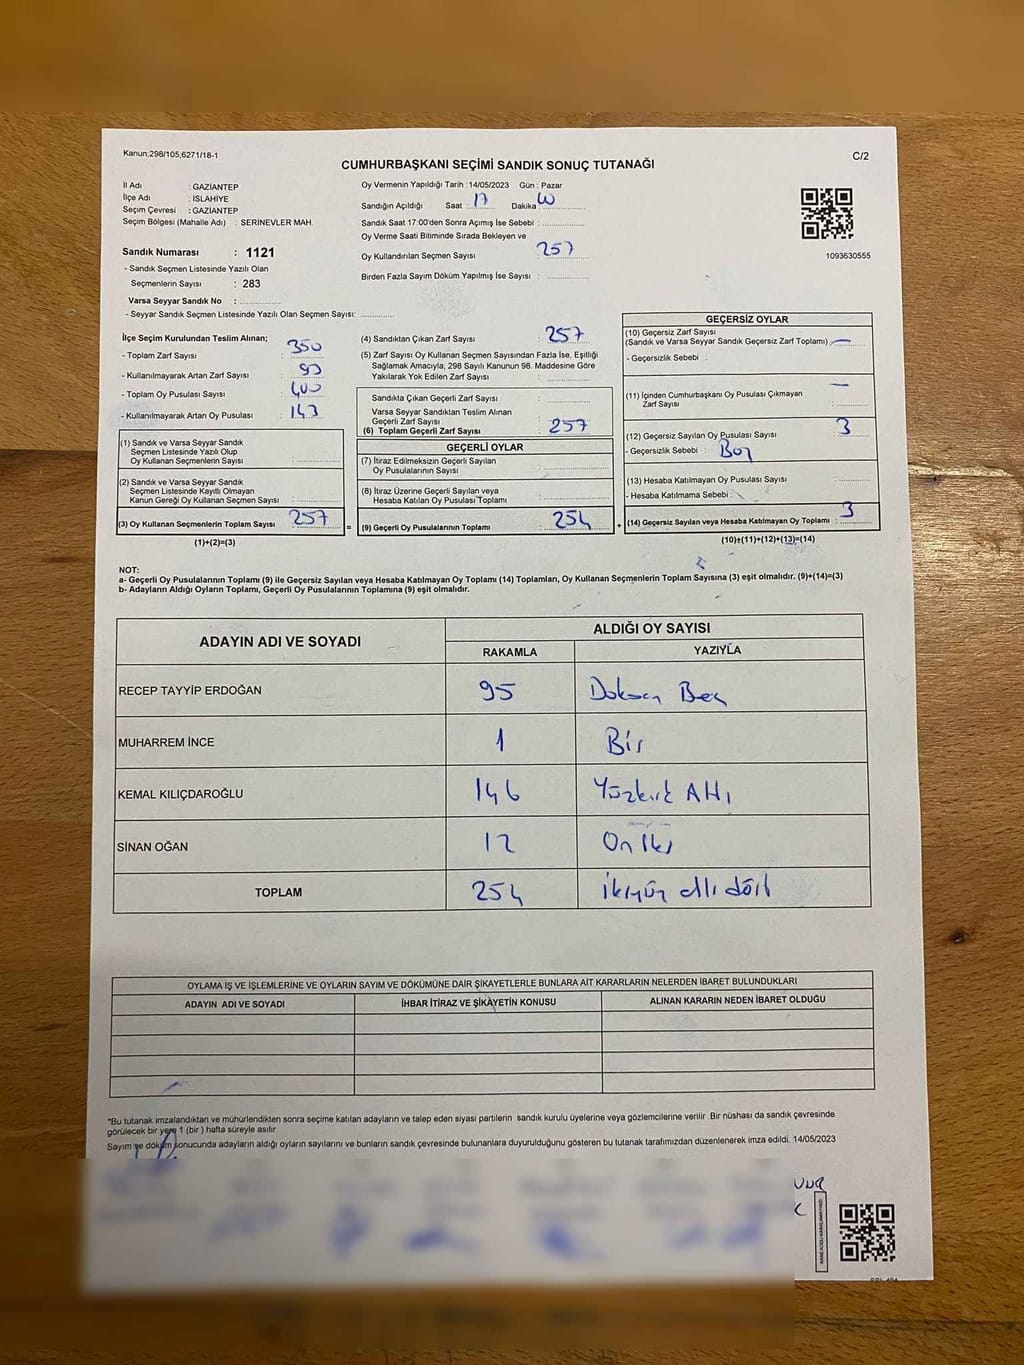 Kanun:298/105,6271/18-1
C/2
CUMHURBAŞKANI SEÇİMİ SANDIK SONUÇ TUTANAĞI
İl Adı : GAZİANTEP
İlçe Adı : İSLAHİYE
Seçim Çevresi : GAZİANTEP
Seçim Bölgesi (Mahalle Adı) : SERİNEVLER MAH.
Sandık Numarası : 1121
- Sandık Seçmen Listesinde Yazılı Olan
Seçmenlerin Sayısı : 283
Varsa Seyyar Sandık No :
- Seyyar Sandık Seçmen Listesinde Yazılı Olan Seçmen Sayısı:
Oy Vermenin Yapıldığı Tarih :14/05/2023 Gün : Pazar
Sandığın Açıldığı Saat : 17 Dakika :
Sandık Saat 17:00'den Sonra Açımış İse Sebebi :
Oy Verme Saati Bitiminde Sırada Bekleyen ve
Oy Kullandırılan Seçmen Sayısı : 257
Birden Fazla Sayım Döküm Yapılmış İse Sayısı :
1093630555
İlçe Seçim Kurulundan Teslim Alınan;
- Toplam Zarf Sayısı : 350
- Kullanılmayarak Artan Zarf Sayısı : 93
- Toplam Oy Pusulası Sayısı : 400
- Kullanılmayarak Artan Oy Pusulası : 143
(1) Sandık ve Varsa Seyyar Sandık
Seçmen Listesinde Yazılı Olup
Oy Kullanan Seçmenlerin Sayısı :
(2) Sandık ve Varsa Seyyar Sandık
Seçmen Listesinde Kayıtlı Olmayan
Kanun Gereği Oy Kullanan Seçmen Sayısı :
(3) Oy Kullanan Seçmenlerin Toplam Sayısı : 257
(1)+(2)=(3)
=
(4) Sandıktan Çıkan Zarf Sayısı : 257
(5) Zarf Sayısı Oy Kullanan Seçmen Sayısından Fazla İse, Eşitliği
Sağlamak Amacıyla, 298 Sayılı Kanunun 98. Maddesine Göre
Yakılarak Yok Edilen Zarf Sayısı :
Sandıkta Çıkan Geçerli Zarf Sayısı :
Varsa Seyyar Sandıktan Teslim Alınan
Geçerli Zarf Sayısı :
(6) Toplam Geçerli Zarf Sayısı : 257
GEÇERLİ OYLAR
(7) İtiraz Edilmeksizin Geçerli Sayılan
Oy Pusulalarının Sayısı :
(8) İtiraz Üzerine Geçerli Sayılan veya
Hesaba Katılan Oy Pusulası Toplamı :
(9) Geçerli Oy Pusulalarının Toplamı : 254
+
GEÇERSİZ OYLAR
(10) Geçersiz Zarf Sayısı
(Sandık ve Varsa Seyyar Sandık Geçersiz Zarf Toplamı) : —
- Geçersizlik Sebebi :
(11) İçinden Cumhurbaşkanı Oy Pusulası Çıkmayan
Zarf Sayısı : —
(12) Geçersiz Sayılan Oy Pusulası Sayısı : 3
- Geçersizlik Sebebi : Boş
(13) Hesaba Katılmayan Oy Pusulası Sayısı :
- Hesaba Katılmama Sebebi :
(14) Geçersiz Sayılan veya Hesaba Katılmayan Oy Toplamı : 3
(10)+(11)+(12)+(13)=(14)
NOT:
a- Geçerli Oy Pusulalarının Toplamı (9) ile Geçersiz Sayılan veya Hesaba Katılmayan Oy Toplamı (14) Toplamları, Oy Kullanan Seçmenlerin Toplam Sayısına (3) eşit olmalıdır. (9)+(14)=(3)
b- Adayların Aldığı Oyların Toplamı, Geçerli Oy Pusulalarının Toplamına (9) eşit olmalıdır.
ADAYIN ADI VE SOYADI
ALDIĞI OY SAYISI
RAKAMLA YAZIYLA
RECEP TAYYİP ERDOĞAN 95 Doksan Beş
MUHARREM İNCE 1 Bir
KEMAL KILIÇDAROĞLU 146 Yüzkırk Altı
SİNAN OĞAN 12 On İki
TOPLAM 254 ikiyüz elli dört
OYLAMA İŞ VE İŞLEMLERİNE VE OYLARIN SAYIM VE DÖKÜMÜNE DAİR ŞİKAYETLERLE BUNLARA AİT KARARLARIN NELERDEN İBARET BULUNDUKLARI
ADAYIN ADI VE SOYADI İHBAR İTİRAZ VE ŞİKAYETİN KONUSU ALINAN KARARIN NEDEN İBARET OLDUĞU
*Bu tutanak imzalandıktan ve mühürlendikten sonra seçime katılan adayların ve talep eden siyasi partilerin sandık kurulu üyelerine veya gözlemcilerine verilir .Bir nüshası da sandık çevresinde
görülecek bir yere 1 (bir ) hafta süreyle asılır.
Sayım ve döküm sonucunda adayların aldığı oyların sayılarını ve bunların sandık çevresinde bulunanlara duyurulduğunu gösteren bu tutanak tarafımızdan düzenlenerek imza edildi. 14/05/2023